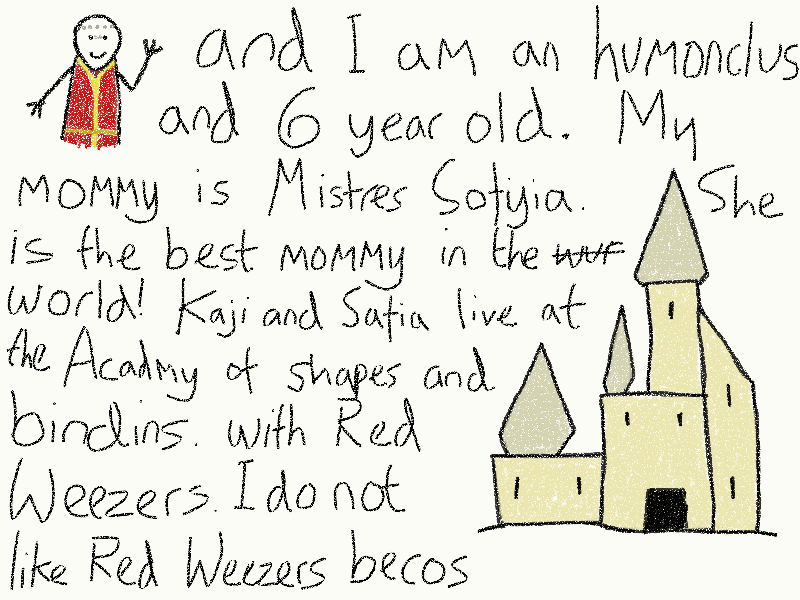 and I am an humonclus
and 6 year old. My
mommy is Mistres Sotyia. She
is the best mommy in the wuf
world! Kaji and Satia live at
the Acadmy of shapes and
bindins. with Red
Weezers. I do not
like Red Weezers becos